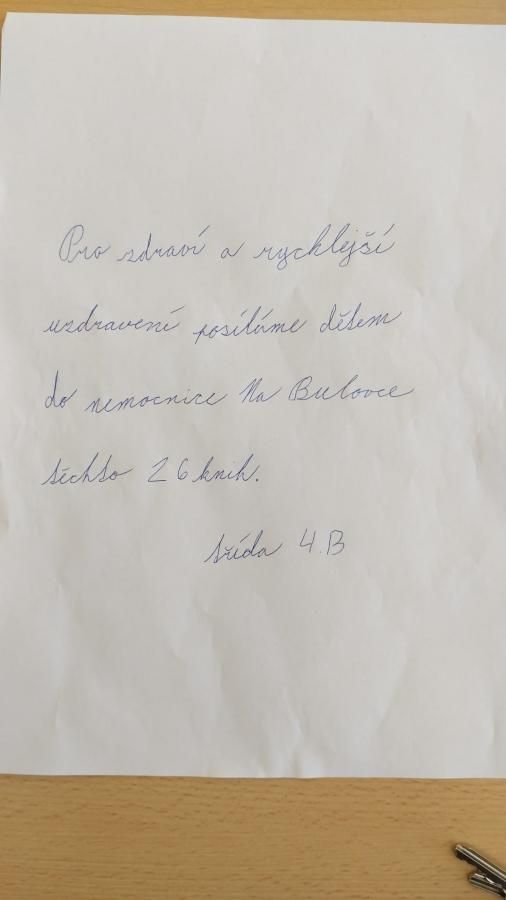 Pro zdraví a rychlejší
uzdravení posíláme dětem
do nemocnice Na Bulovce
těchto 26 knih.
třída 4.B